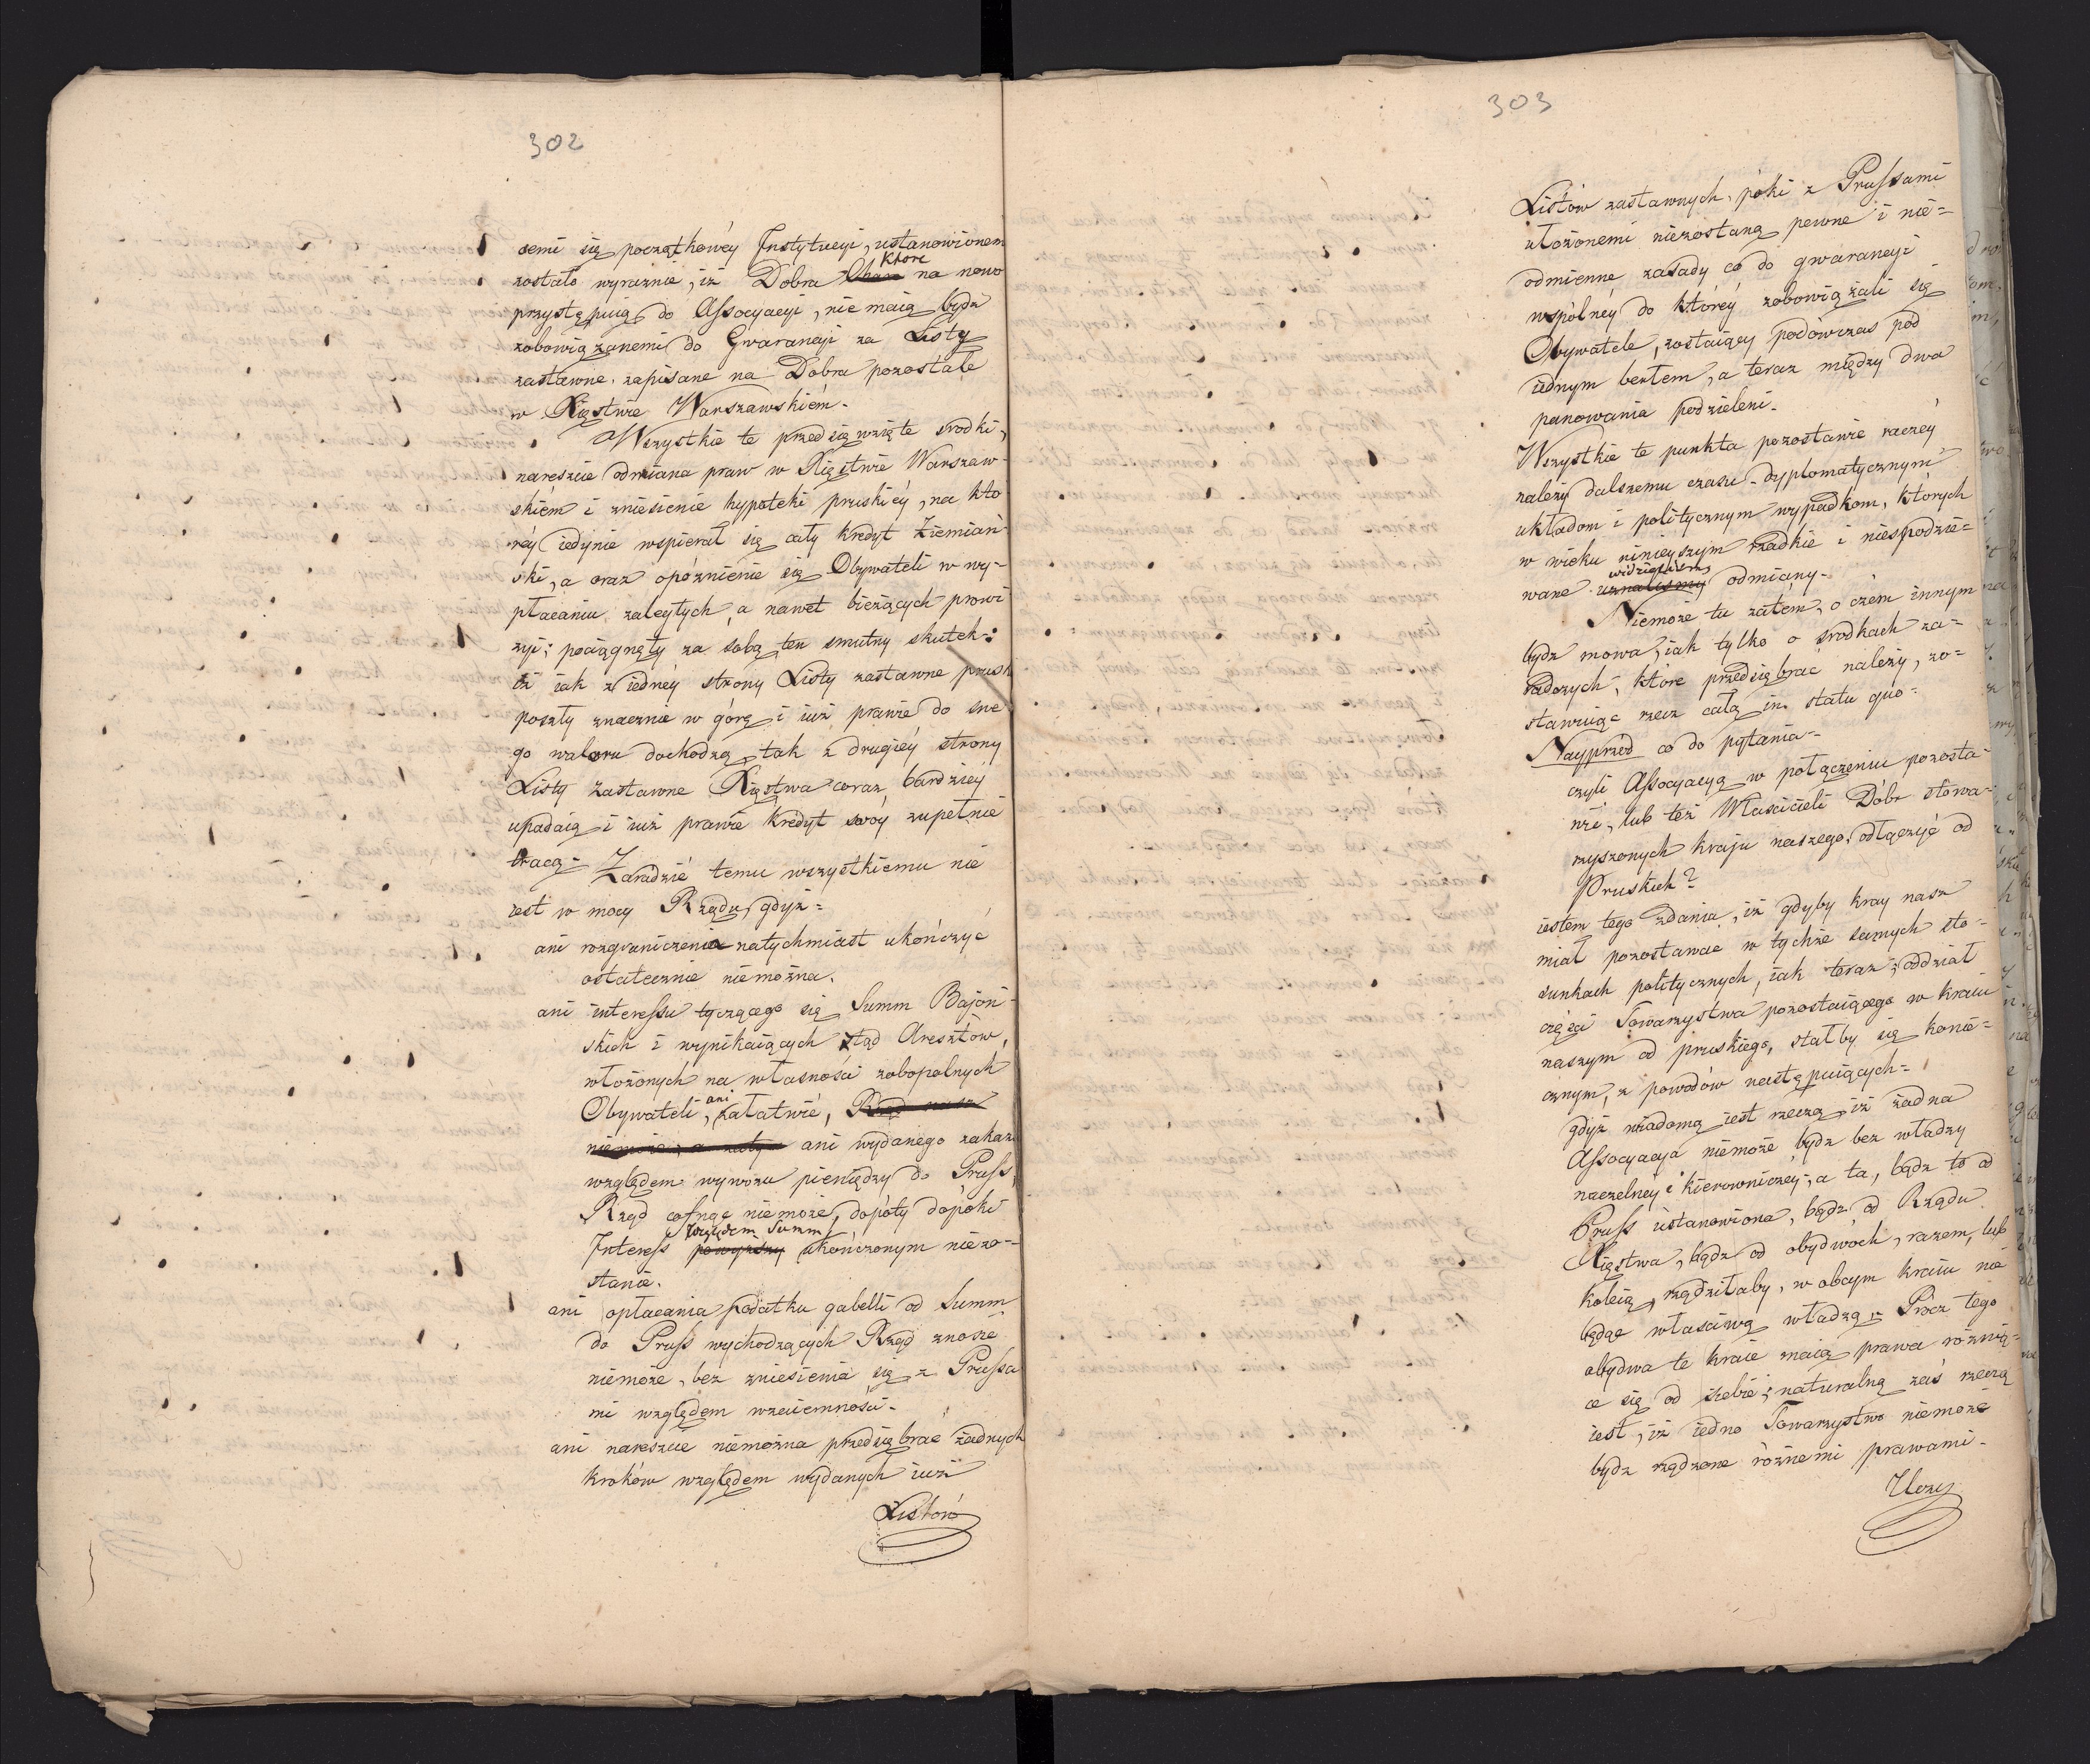 302
cemi się początkowéy Instytucyi, ustanowionem
zostało wyraznie, iż Dobra które na nowo
przystępuią do Assocyacyi, nie maią bydź
zobowiązanemi do Gwarancyi za Listy
zastawne zapisane na Dobra pozostałe
w Xięstwie Warszawskiém.
Wszystkie te przedsięwzięte srodki,
nareszcie odmiana praw w Xięstwie Warszaw-
skiém i zniesienie hypoteki pruskiéy, na kto-
réy iedynie wspierał się cały kredyt Ziemiań-
ski, a oraz opóznienie się Obywateli w wy-
płacaniu zaległych, a nawet bieżących prowi
zyi; pociągnęły za sobą ten smutny skutek:
iż iak z iednéy strony Listy zastawne prusk
poszły znacznie w górę i iuż prawie do swe
go waloru dochodzą, tak z drugiéy strony
Listy Zastawne Xięstwa coraz bardziéy
upadaią i iuż prawie kredyt swóy zupełnie
tracą - Zaradzić temu wszystkiemu nie
iest w mocy Rządu, gdyż =
ani rozgraniczenia natychmiast ukończyć
ostatecznie niemożna.
ani interessu tyczącego się Summ Bajoń-
skich i wynikaiących ztąd Aresztów,
włożonych na własności zobopolnych
Obywateli, ani załatwić, Rząd nasz
niemoże, a zatym ani wydanego zakazu
względem wywozu pieniędzy do Pruss,
Rząd cofnąć niemoże, dopóty dopóki
Interess powyższy względem Summ ukończonym niezo-
stanie.
ani opłacania podatku gabelli od Summ
do Pruss wychodzących Rząd znosić
niemoże, bez zniesienia się z Prussa
mi względem wzaiemności.
ani nareszcie niemożna przedsiębrać żadnych
kroków względem wydanych iuż
Listów
303
Listów zastawnych, póki z Prussami
ułożonemi niezostaną pewne i nie=
odmienne zasady co do gwarancyi
wspólnéy do któréy zobowiązali się
Obywatele, zostaiący podówczas pod
iednym berłem, a teraz między dwa
panowania podzieleni.
Wszystkie te punkta pozostawić raczéy
należy dalszemu czasu dyplomatycznym
układom i politycznym wypadkom, których
w wieku ninieyszym rzadkie i niespodzie=
wane uznalismy widzieliśmy odmiany.
Niemoże tu zatém, o czém innym
bydz mowa, iak tylko o srodkach za=
radczych, które przedsiębrać należy, zo=
stawuiąc rzecz całą in statu quo =
Nayprzód co do pytania -
czyli Assocyacyą w połączeniu pozosta
wić, lub też Właścicieli Dóbr stowa-
rzyszonych kraju naszego, odłączyć od
Pruskich?
iestem tego zdania, iż gdyby kray nasz
miał pozostawać w tychże samych sto-
sunkach politycznych, iak teraz; oddział
części Towarzystwa pozostaiącego w kraiu
naszym od pruskiego, stałby się konie=
cznym, z powodów następuiących =
gdyż wiadomą iest rzeczą, iż żadna
Assocyacya niemoże bydz bez władzy
naczelnéy i kierowniczéy; a ta, bądz to od
Pruss ustanowiona, bądz od Rządu
Xięstwa, bądz od obydwóch, razem, lub
koleią, rządziłaby, w obcym kraiu nie
będąc właściwą władzą; Prócz tego
obydwa te kraie maią prawa różnią=
ce się od siebie; naturalną zaś rzeczą
iest, iż iedno Towarzystwo niemoże
bydz rządzone różnemi prawami.